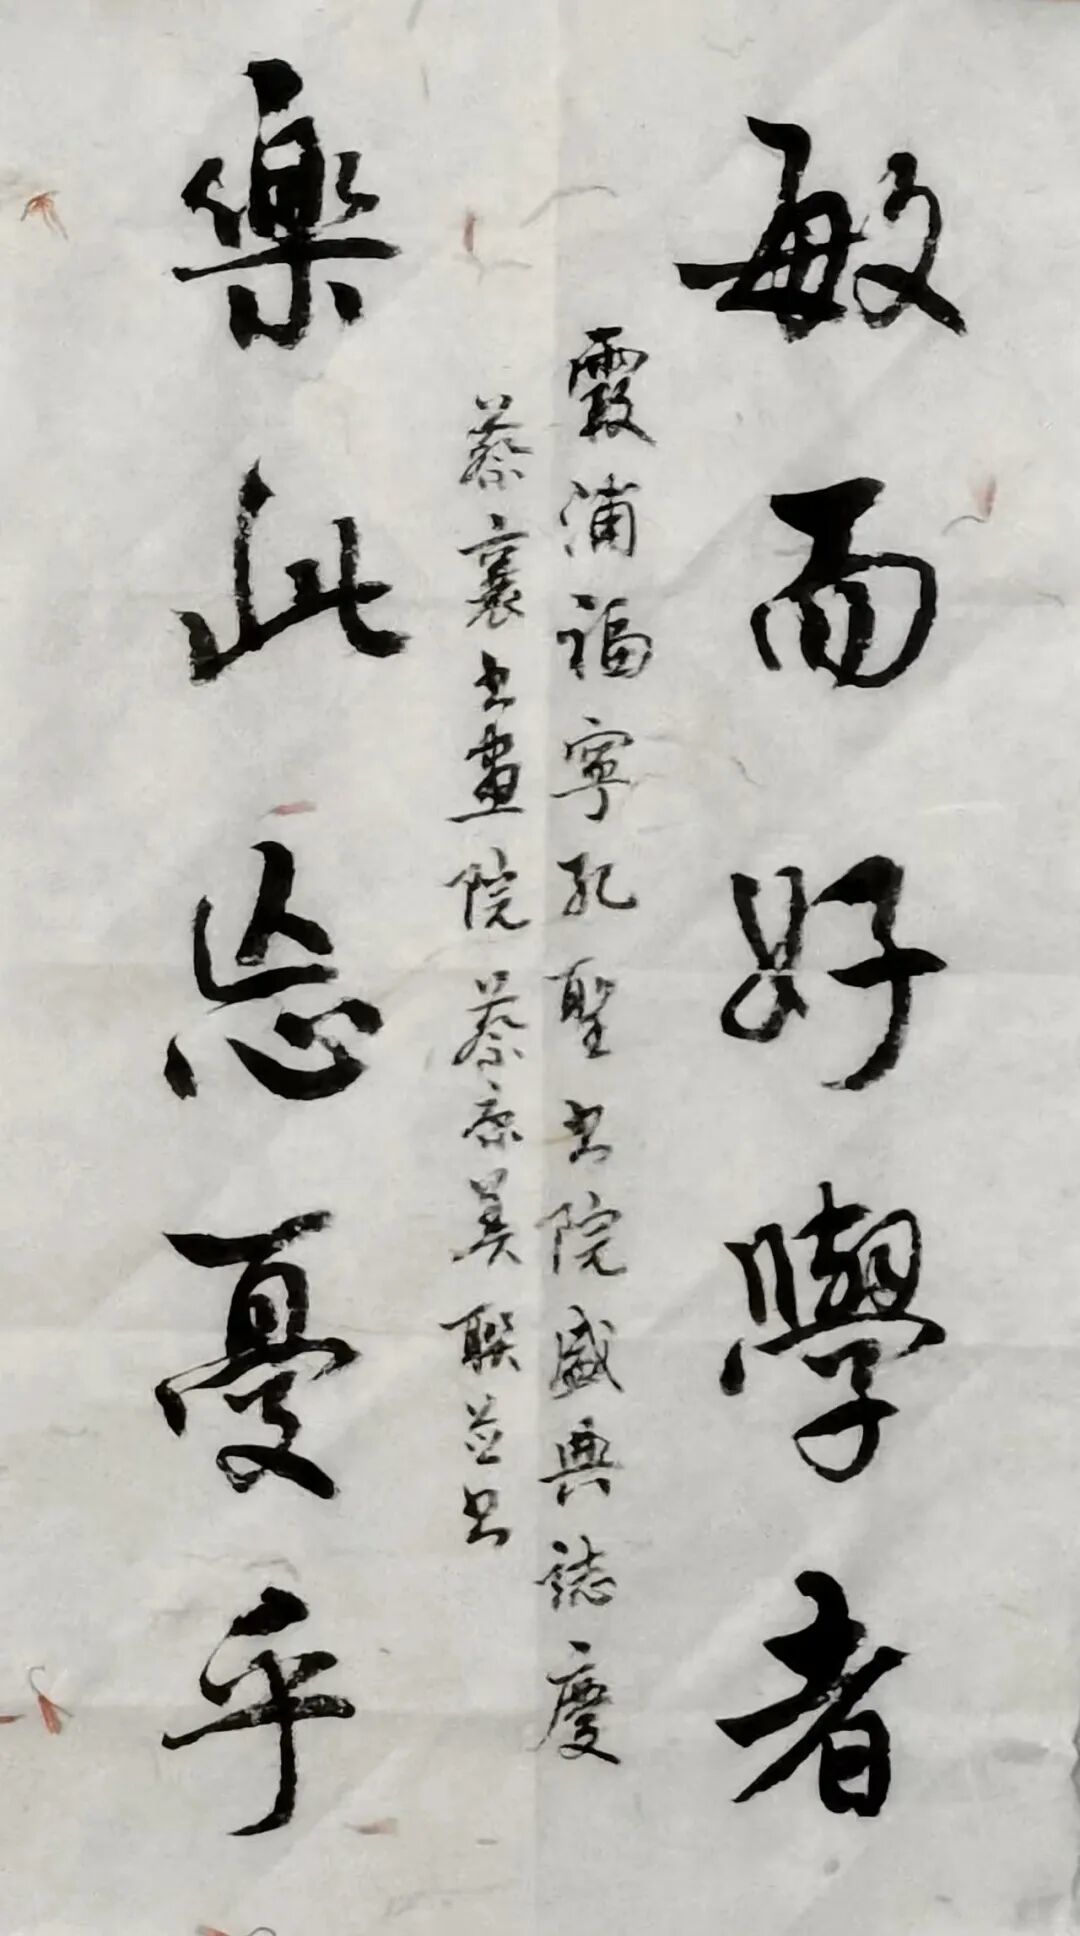 敏而好學者
霞浦福寧孔聖书院盛典誌慶
蔡襄书畫院蔡京美聯並书
樂此忘憂乎